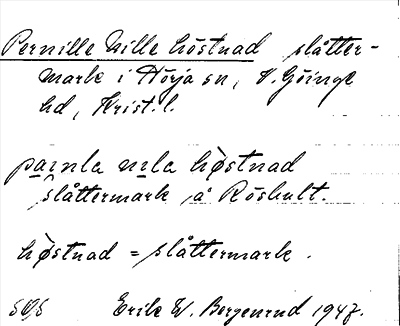 Pernille Nille höstnad slåtter-
mark i Hörja sn, V. Göinge
hd, Krist. l.
pạinla nịla hòstnad
slåttermark å Röshult.
höstnad = slåttermark.
Erik W. Bergenrud 1947.